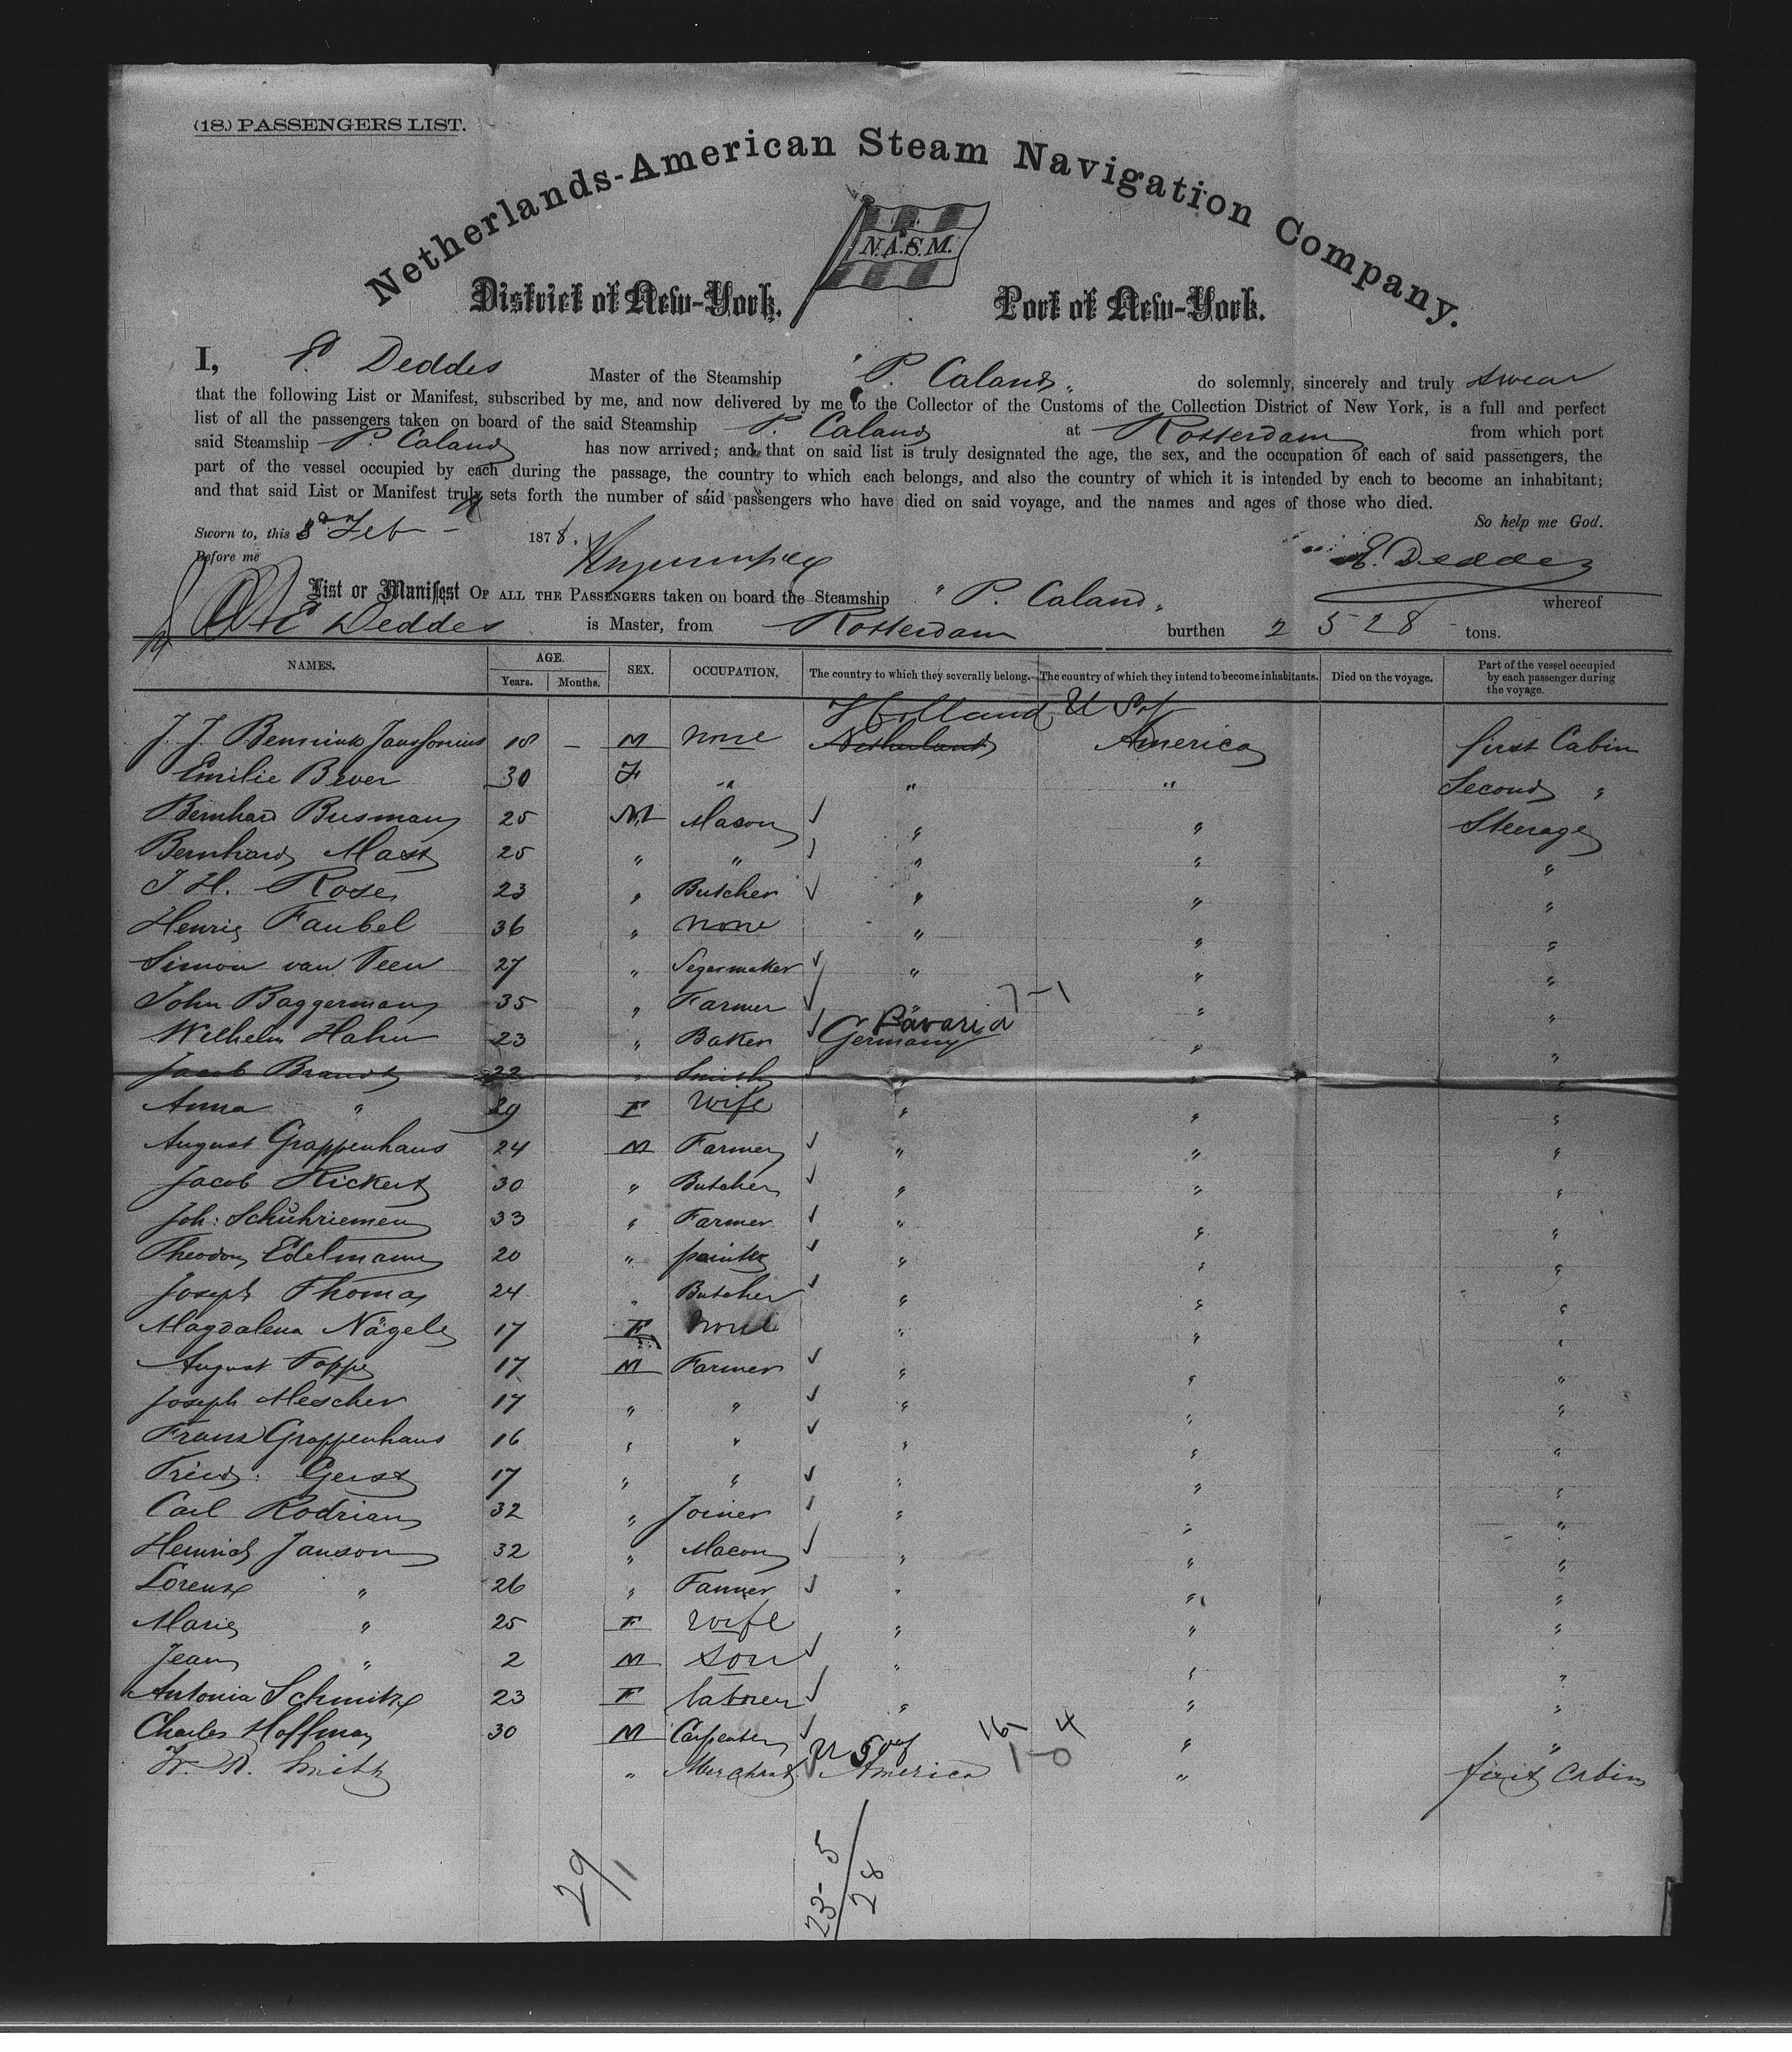 (18.) PASSENGERS LIST.
Netherlands-American Steam Navigation Company.
N.A.S.M.
District of New-York. Port of New-York.
I, E. Deddes Master of the Steamship "P. Caland" do solemnly, sincerely and truly swear
that the following List or Manifest, subscribed by me, and now delivered by me to the Collector of the Customs of the Collection District of New York, is a full and perfect
list of all the passengers taken on board of the said Steamship P. Caland at Rotterdam from which port
said Steamship P. Caland has now arrived; and that on said list is truly designated the age, the sex, and the occupation of each of said passengers, the
part of the vessel occupied by each during the passage, the country to which each belongs, and also the country of which it is intended by each to become an inhabitant;
and that said List or Manifest truly sets forth the number of said passengers who have died on said voyage, and the names and ages of those who died.
So help me God.
Sworn to, this 8 Feb - 1878.
Before me E. Deddes
List or Manifest OF ALL THE PASSENGERS taken on board the Steamship "P. Caland" whereof
E Deddes is Master, from Rotterdam burthen 2528 tons.
NAMES. AGE. Years. Months. SEX. OCCUPATION. The country to which they severally belong. The country of which they intend to become inhabitants. Died on the voyage. Part of the vessel occupied by each passenger during the voyage.
Holland U S of
J. J. Bennink Janssonius 18 - M none Netherland America first Cabin
Emilie Bever 30 F " " " Second "
Bernhard Busman 25 M Mason " " Steerage
Bernhard Mast 25 " " " " "
J H. Rose 23 " Butcher " " "
Henrig Faubel 36 " none " " "
Simon van Teen 27 " Segermaker " " "
John Baggerman 35 " Farmer " " "
7-1
Bavaria
Wilhelm Hahn 23 " Baker Germany " "
Jacob Brandt 22 " Smith " " "
Anna " 29 F wife " " "
August Grappenhaus 24 M Farmer " " "
Jacob Rickert 30 " Butcher " " "
Joh: Schuhriemen 33 " Farmer " " "
Theodor Edelmann 20 " painter " " "
Joseph Thomas 24 " Butcher " " "
Magdalena Nägele 17 F none " " "
August Foppe 17 M Farmer " " "
Joseph Mescher 17 " " " " "
Franz Grappenhaus 16 " " " " "
Fried: Geist 17 " " " " "
Carl Rodrian 32 " Joiner " " "
Heinrich Janson 32 " Macon " " "
Lorenz " 26 " Farmer " " "
Marie " 25 F wife " " "
Jean " 2 M son " " "
Antonia Schmitz 23 F labrer " " "
Charles Hoffman 30 M Carpenter " "
16-4
U S of 1-0
Smith " Merchant America " first Cabin
29/1
23-5/28